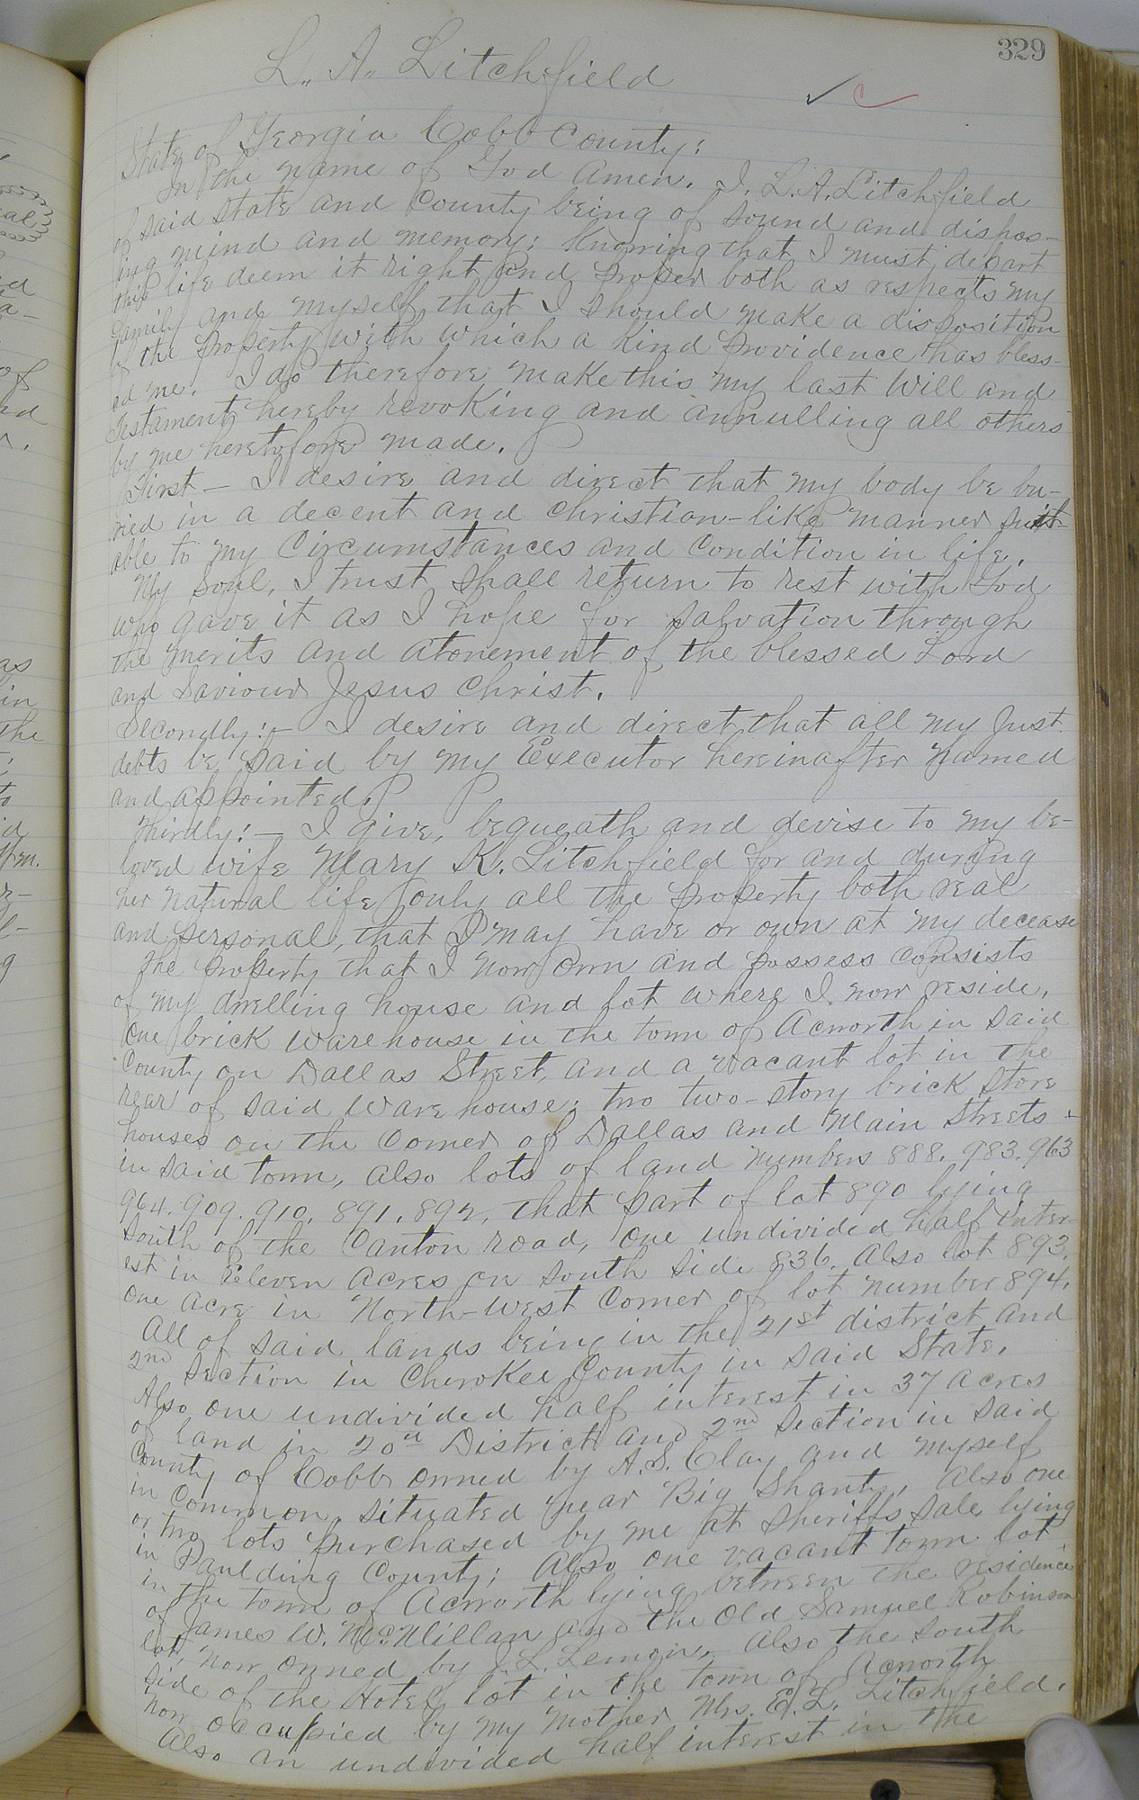 329
L. A. Litchfield
State of Georgia Cobb County:
In the name of God Amen. I, L. A. Litchfield
of said State and County being of sound and dispos-
ing mind and memory: Knowing that I must depart
this life deem it right and proper both as respects my
family and myself that I should make a disposition
of the property with which a kind Providence has bless-
ed me. I do therefore make this my last Will and
Testament hereby revoking and annulling all others
by me heretofore made.
First - I desire and direct that my body be bu-
ried in a decent and christian-like manner suit-
able to my circumstances and condition in life.
My Soul, I trust shall return to rest with God
who gave it as I hope for salvation through
the merits and atonement of the blessed Lord
and Saviour Jesus Christ.
Secondly:- I desire and direct that all my Just
debts be paid by my Executor hereinafter named
and appointed.
Thirdly:- I give, bequeath and devise to my be-
loved wife Mary K. Litchfield for and during
her natural life only all the property both real
and personal, that I may have or own at my decease
The property that I now own and possess consists
of my dwelling house and lot where I now reside,
One brick warehouse in the town of Acworth in said
County on Dallas Street, and a vacant lot in the
rear of said Ware house; two two-story brick store
houses on the corner of Dallas and Main Streets
in said town, also lots of land numbers 888. 983. 963
964. 909. 910. 891. 892, that part of lot 890 lying
South of the Canton road, One undivided half inter-
est in Eleven acres on south side 836. Also lot 893.
One acre in North-West corner of lot number 894.
All of said lands being in the 21st district and
2nd Section in Cherokee County in said State.
Also one undivided half interest in 37 acres
of land in 20th District and 2nd Section in said
County of Cobb owned by A. S. Clay and myself
in common, situated near Big Shanty, Also one
or two lots purchased by me at Sheriffs sale lying
in Paulding County; Also one vacant town lot
in the town of Acworth lying between the residence
of James W. McMillan and the Old Samuel Robinson
lot, now owned by J. L. Lemon, Also the south
side of the Hotel lot in the town of Acworth
now occupied by my Mother Mrs. E. L. Litchfield.
Also an undivided half interest in the